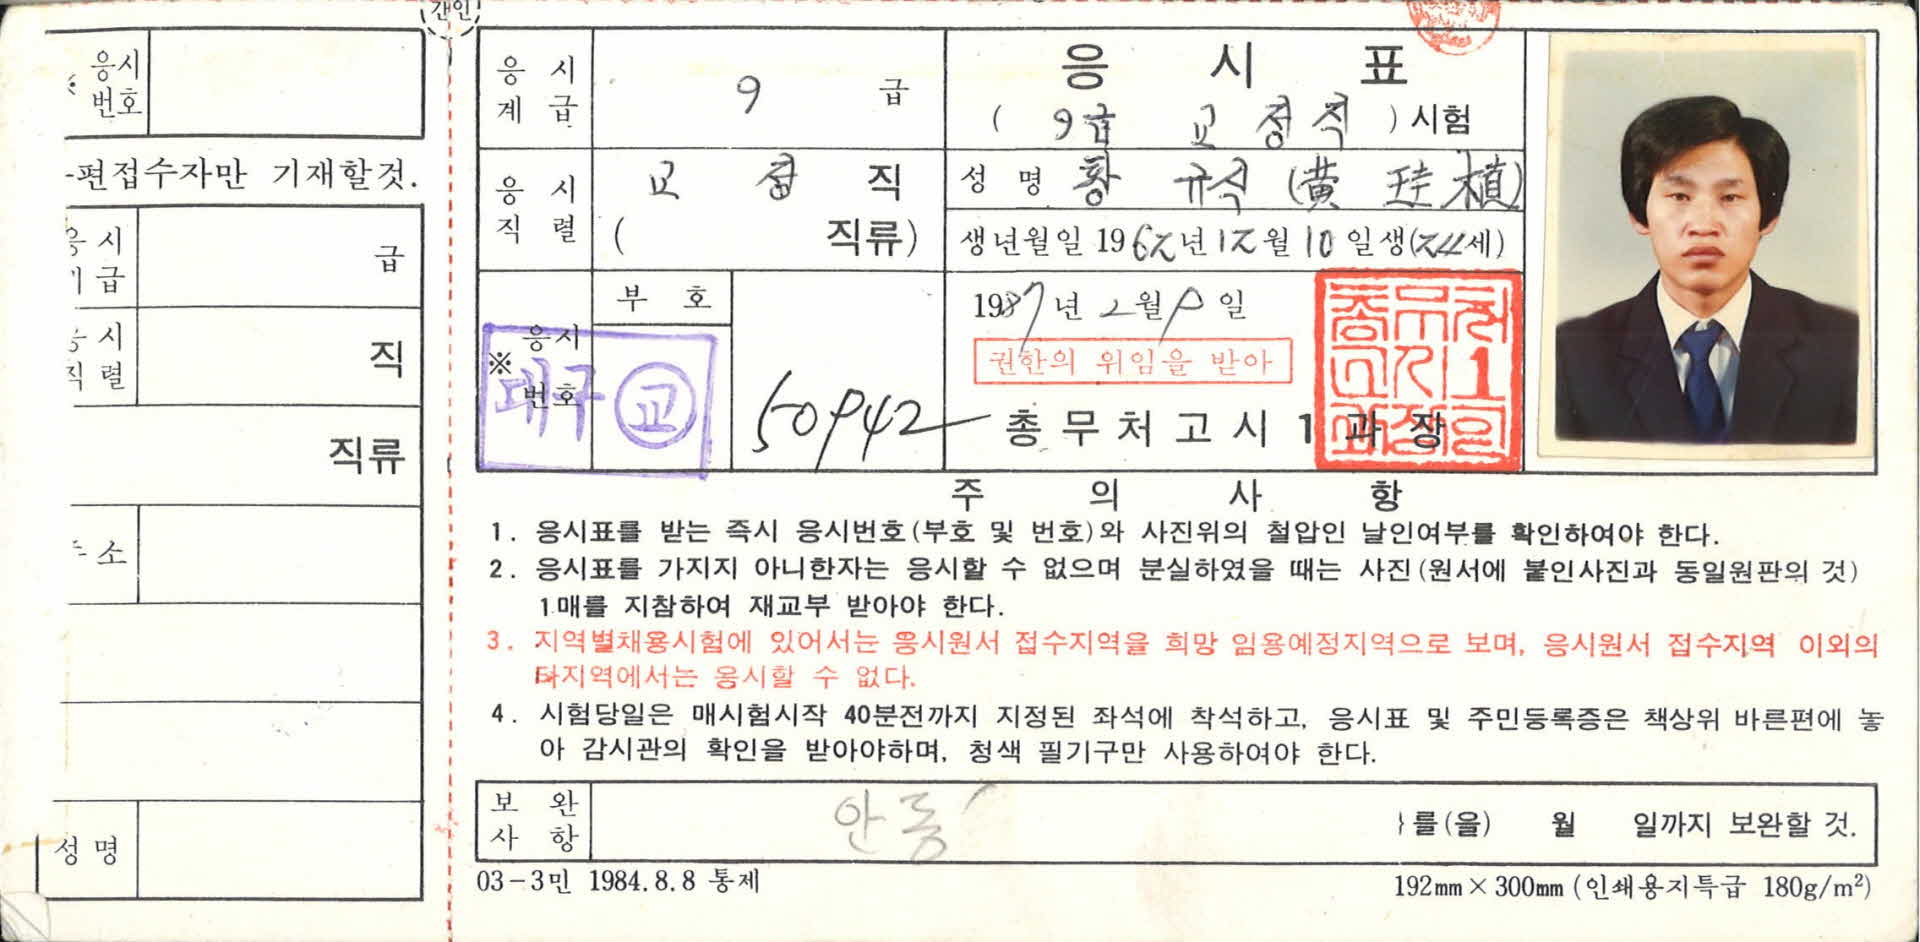 간인
응시
번호
편접수자만 기재할것.
응시
급
급
시
직렬
직
직류
소
성명
응시
계급
9 급
응시표
( 9급 교정직 ) 시험
응시
직렬
교정 직
( 직류)
성명 황규식 (黃珪植)
생년월일 1962년 12월 10일생(24세)
※ 응시
번호
부호
대구 교
50942
1987년 2월 9일
권한의 위임을 받아
총무처고시1과장
주의사항
1. 응시표를 받는 즉시 응시번호(부호 및 번호)와 사진위의 철압인 날인여부를 확인하여야 한다.
2. 응시표를 가지지 아니한자는 응시할 수 없으며 분실하였을 때는 사진(원서에 붙인사진과 동일원판의 것)
1매를 지참하여 재교부 받아야 한다.
3. 지역별채용시험에 있어서는 응시원서 접수지역을 희망 임용예정지역으로 보며, 응시원서 접수지역 이외의
타지역에서는 응시할 수 없다.
4. 시험당일은 매시험시작 40분전까지 지정된 좌석에 착석하고, 응시표 및 주민등록증은 책상위 바른편에 놓
아 감시관의 확인을 받아야하며, 청색 필기구만 사용하여야 한다.
보완
사항
안동
}를(을) 월 일까지 보완할 것.
03-3민 1984.8.8 통제
192mm×300mm (인쇄용지특급 180g/m²)